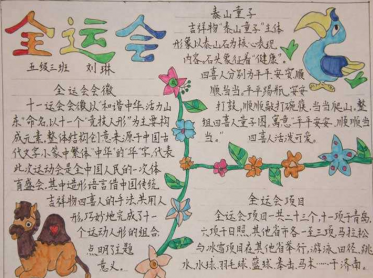 全运会
五级三班 刘琳
全运会会徽
十一运会会徽以“和谐中华活力山
东”命名,以十一个“竞技人形”为主要构
成元素,整体结构创意来源于中国古
代文字小篆中繁体“华”的“华”字,代表
此次运动会是全中国人民的一次体
育盛会,其中造形语言借中国传统
吉祥物四喜人的手法,共用人
形巧妙地完成了十一
个运动人形的组合
点明了主题
意义。
泰山童子
吉祥物“泰山童子”主体
形象以泰山石为核心表现
内容,石头象征着“健康”。
四喜人分别为平平、安安、顺
顺当当。平平扬帆,安安
打鼓,顺顺敲打碗筷,当当爬山,整
组四喜人童子图,寓意“平平安安,顺顺当
当。”四喜人活泼可爱。
全运会项目
全运会项目一共二十三个,十一项于青岛,
六项十日照,其他省市各一至三项,马拉松
与冰雪项目在其他省举行,游泳、田径、跳
水、水球、羽毛球、篮球、拳击、马术……于济南。